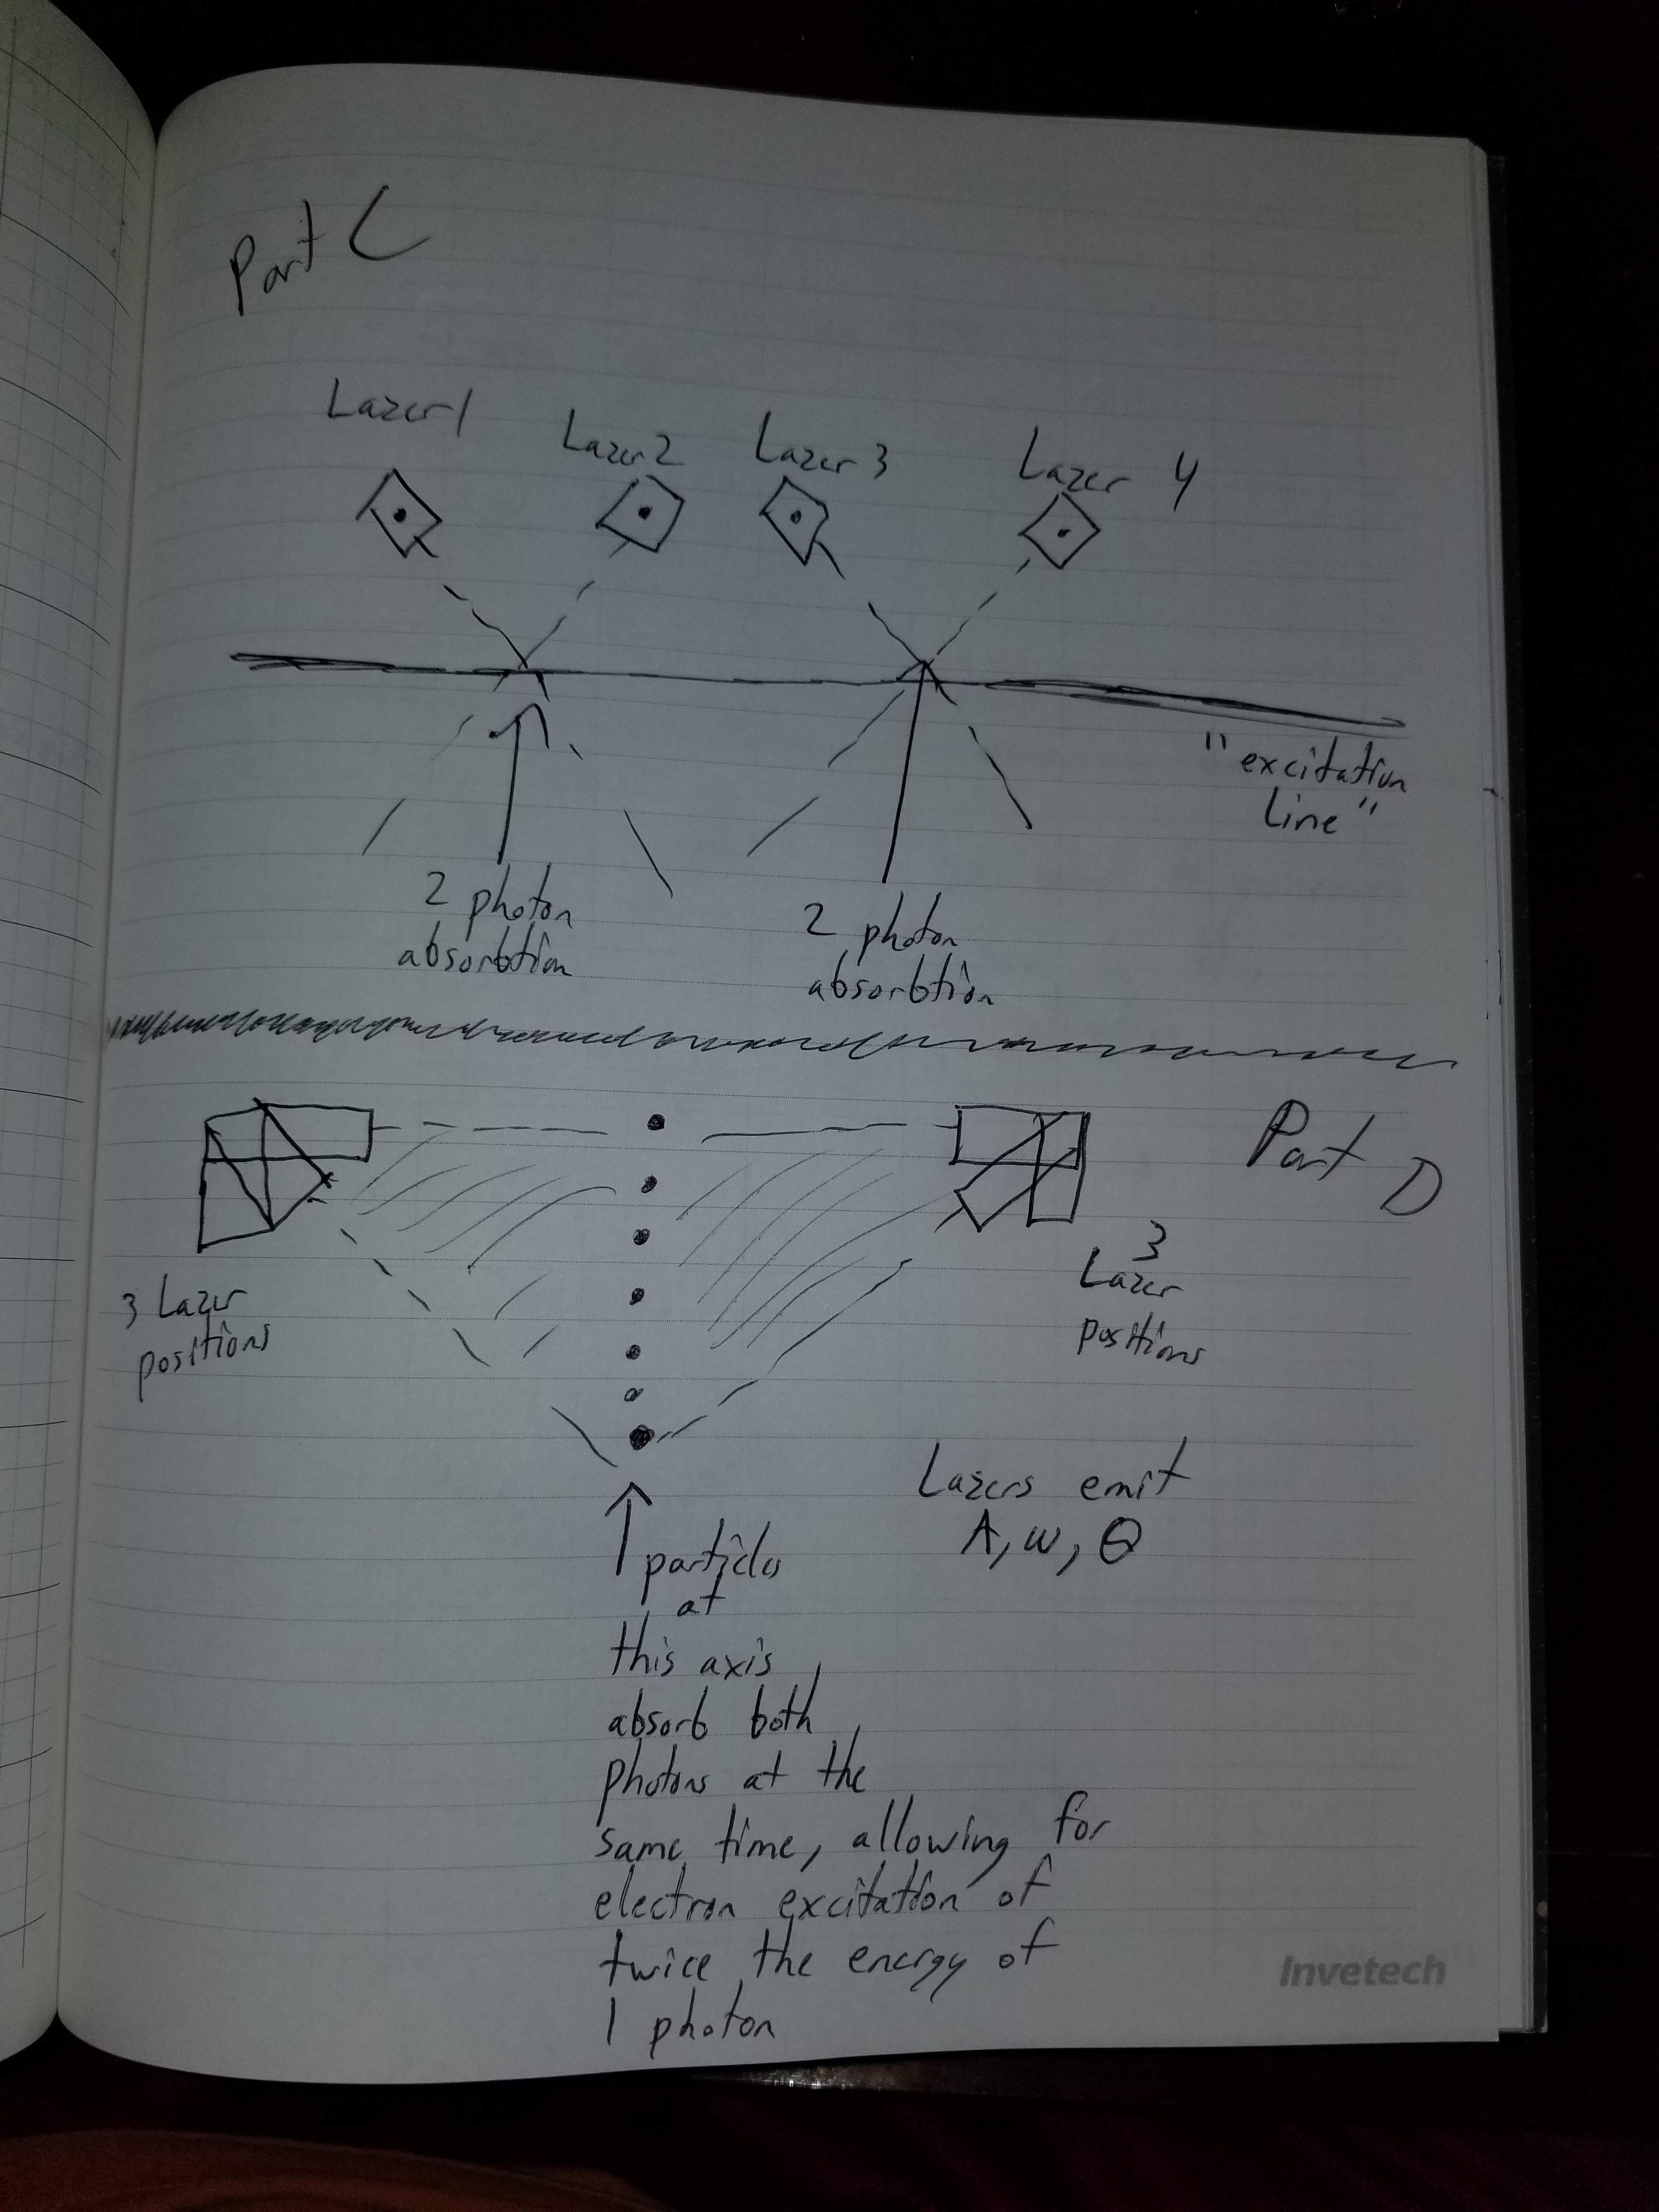 Part C
Lazer 1
Lazer 2
Lazer 3
Lazer 4
"excitation
line"
2 photon
absorbtion
2 photon
absorbtion
Part D
3 Lazer
positions
3
Lazer
positions
Lazers emit
λ, ω, Θ
particles
at
this axis
absorb both
photons at the
same time, allowing for
electron excitation of
twice the energy of
1 photon
Invetech